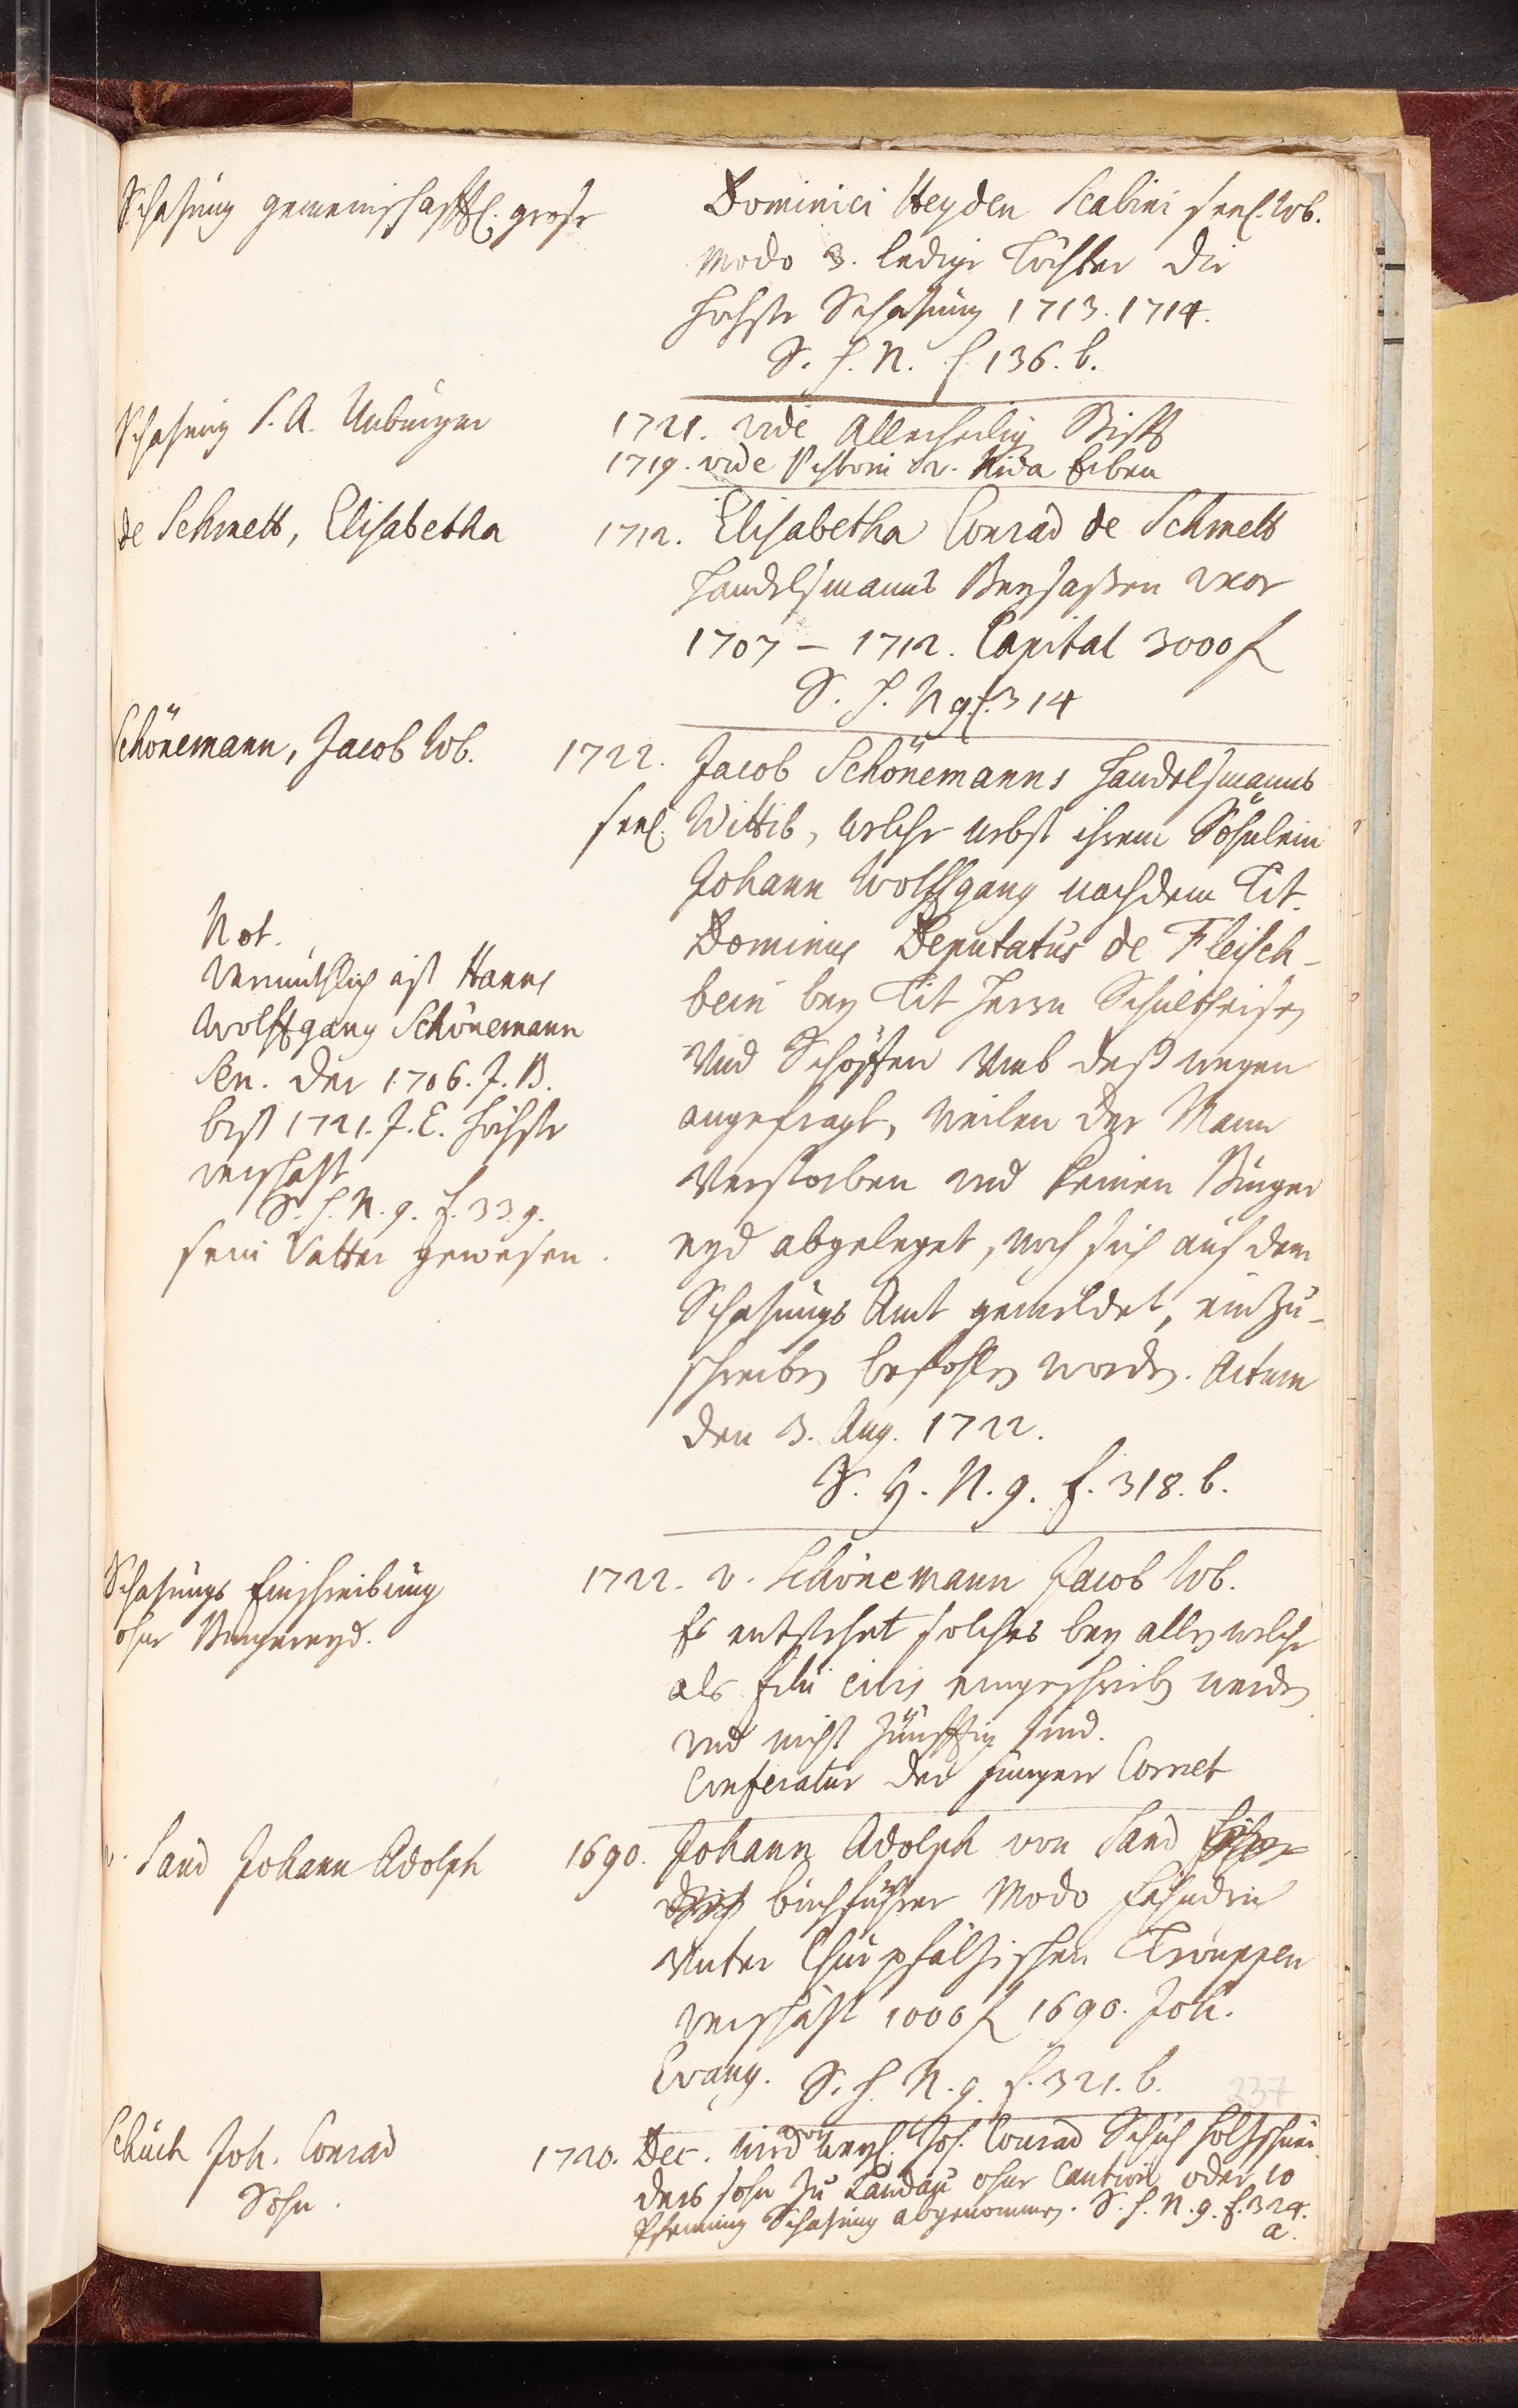 Schatzung gemeinschafftl. große
Dominici Heyden Scabini seel. Wb.
modo 3. ledige Töchter die
höchste Schatzung 1713. 1714.
S. H. N. f. 136. b.
Schatzung S. A. Unbürger
1721. vide Allerheilig Stifft
1719. vide Pistorii v. Nida Erben
de Schmett, Elisabetha
1712. Elisabetha Conrad de Schmett
Handelsmanns Beysaßen uxor
1707 – 1712. Capital 3000 f
S. H. N 9. f. 314
Schönemann, Jacob Wb.
1722. Jacob Schönemanns Handelsmanns
seel. Wittib, welche nebst ihrem Söhnlein
Johann Wolffgang nachdem Tit.
Dominus Deputatus de Fleisch-
bein bey Tit Herrn Schultheisen
und Schöffen Umb deßwegen
angefragt, weilen der Mann
Verstorben und keinen Bürger
eyd abgeleget, noch sich auf dem
Schatzungs Amt gemeldet, einzu-
schreiben befohlen worden. Actum
den 3. Aug. 1722.
S. H. N. 9. f. 318. b.
Not.
Vermuthlich ist Hanns
Wolffgang Schönemann
Sen. der 1706. J. B.
biß 1721. J. E. höchste
verschatzt
S. H. N. 9. f. 339.
sein Vatter gewesen.
Schatzungs Einschreibung
ohne Burgereyd.
1722. v. Schönemann Jacob Wb.
Es entstehet solches bey allen welche
als filii civis eingeschrieben werden
und nicht zünfftig sind.
Conferatur der jüngere Cornet
v. Sand Johann Adolph
1690. Johann Adolph von Sand
buchführer modo Fähndrich
Unter Churpfältzischen Trouppen
verschatzt 1000 f 1690. Joh.
Evang. S. H. N. 9. f. 321. b.
237
Schuch Joh. Conrad
Sohn.
1720. Dec. wird von weyl. Joh. Conrad Schuch Holtzschnei
ders sohn zu Landau ohne Caution oder 10
Pfenning Schatzung abgenommen. S. H. N. 9. f. 324.
a.